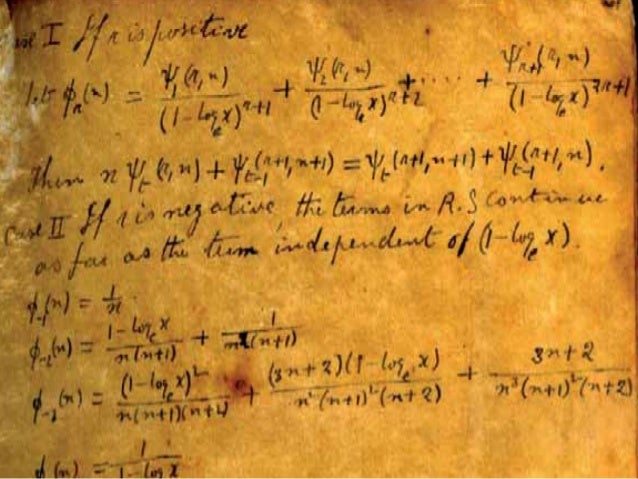 Case I If r is positive
let φ_r(n) = ψ_1(r,n)/(1-log_e x)^{r+1} + ψ_2(r,n)/(1-log_e x)^{r+2} + ···· + ψ_{r+1}(r,n)/(1-log_e x)^{2r+1}
Then n ψ_t(r,n) + ψ_{t-1}(r+1,n+1) = ψ_t(r+1,n+1) + ψ_{t-1}(r+1,n).
Case II If r is negative, the terms in R.S continue
as far as the term independent of (1-log_e x).
φ_{-1}(n) = 1/n.
φ_{-2}(n) = (1-log_e x)/(n(n+1)) + 1/(n²(n+1))
φ_{-3}(n) = (1-log_e x)²/(n(n+1)(n+2)) + (3n+2)(1-log_e x)/(n²(n+1)²(n+2)) + (3n+2)/(n³(n+1)²(n+2))
(n) = 1/(1-log x